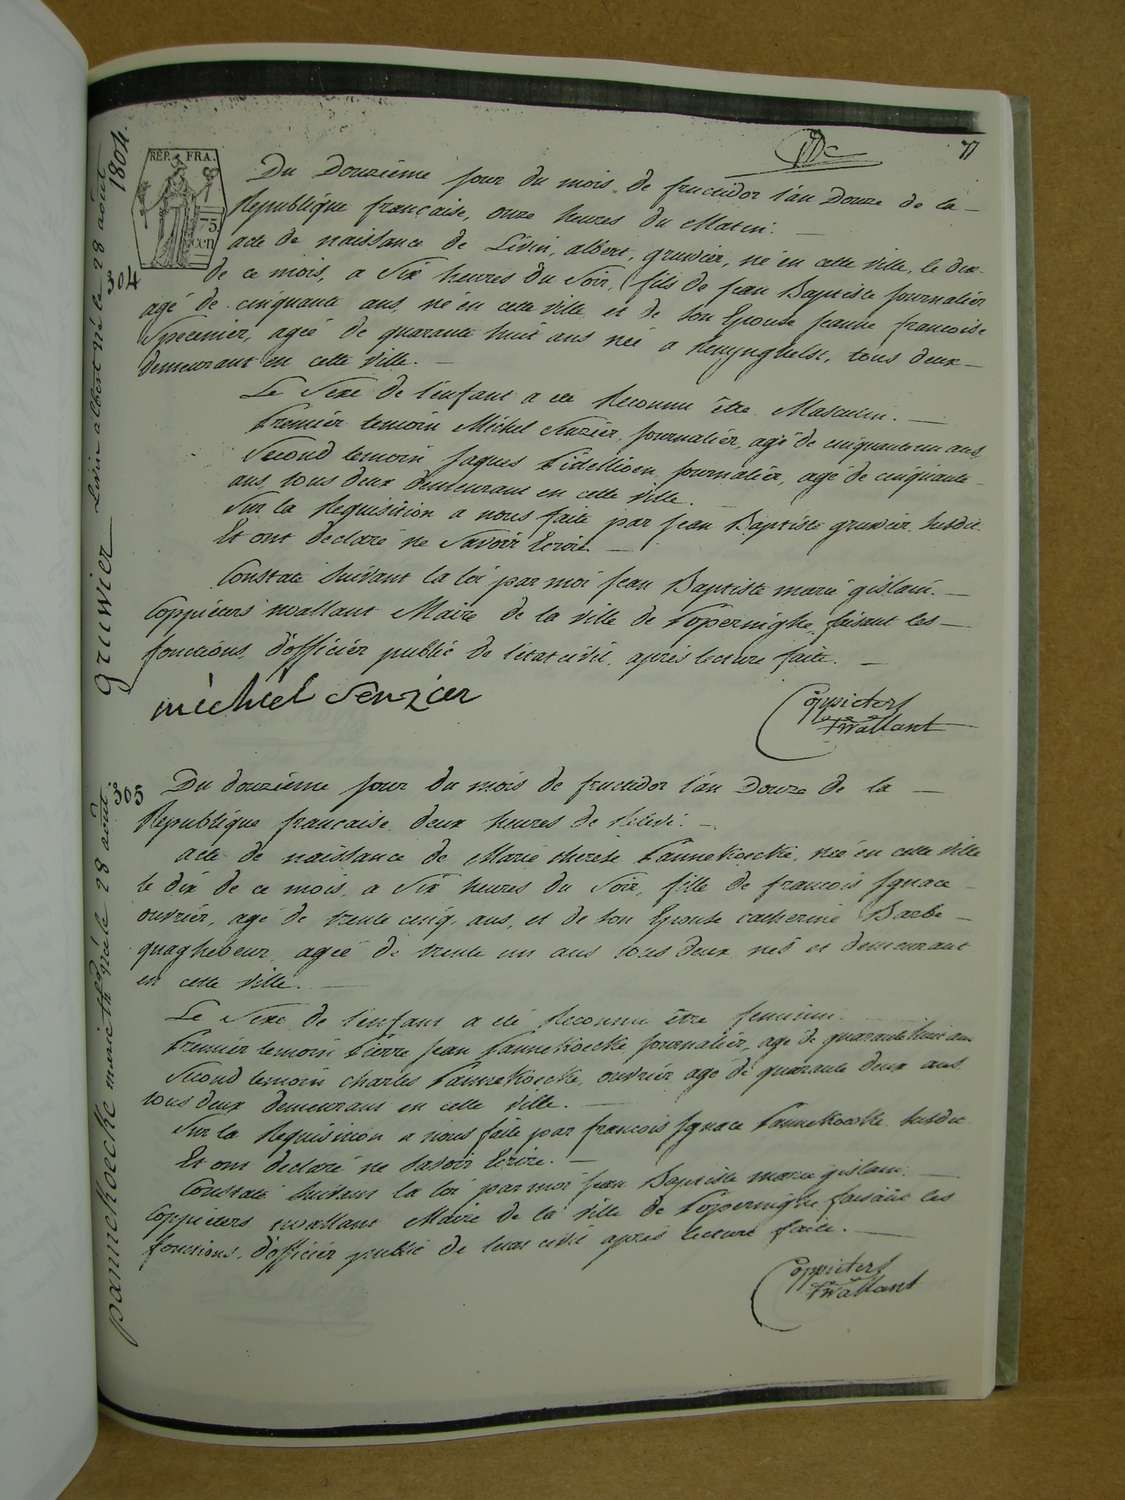 77
1804.
REP. FRA.
75
cen
304
gruwier Livin albert né le 28 août
Du Douzième jour du mois de fructidor l'an Douze de la
République française, onze heures du Matin.
acte de naissance de Livin, albert, gruwier, né en cette ville, le dix
de ce mois, a Six heures du Soir, fils de Jean Baptiste journalier
agé de cinquante ans, né en cette ville et de son Epouse Jeanne francoise
agée de quarante huit ans née a Renynghelst, tous deux
demeurant en cette ville.
Le Sexe de l'enfant a été Reconnu être Masculin.
Premier temoin Michel Senzier, journalier, agé de cinquante un ans,
Second temoin Jaques journalier, agé de cinquante
ans, tous deux demeurans en cette ville.
Sur la Requisition a nous faite par Jean Baptiste gruwier susdit
Et ont declaré ne Savoir Ecrire
Constaté Suivant la loi par moi Jean Baptiste marie gislain.
Coppieters wallant Maire de la ville de Poperinghe, faisant les
fonctions, d'officier public de l'etat civil, après lecture faite.
michiel Senzier
Coppieters
twallant
305
pannekoecke marie thé. née le 28 août
Du douzième jour du mois de fructidor l'an Douze de la
République française, deux heures de relevé.
acte de naissance de Marie therese Pannekoecke, née en cette ville
le dix de ce mois, a Six heures du Soir, fille de francois Ignace
ouvrier, agé de trente cinq, ans, et de son Epouse catherine Barbe
quaghebeur, agée de trente un ans tous deux nés et demeurant
en cette ville.
Le Sexe de l'enfant a été Reconnu être feminin.
Premier temoin Pierre Jean Pannekoecke journalier, agé de quarante huit ans
Second temoin charles Pannekoecke, ouvrier agé de quarante deux ans
tous deux demeurans en cette ville.
Sur la Requisition a nous faite par francois Ignace Pannekoecke susdit
Et ont declaré ne Savoir Ecrire.
Constaté Suivant la loi par moi Jean Baptiste marie gislain.
Coppieters twallant Maire de la ville de Poperinghe faisant les
fonctions, d'officier public de l'etat civil après lecture faite.
Coppieters
twallant